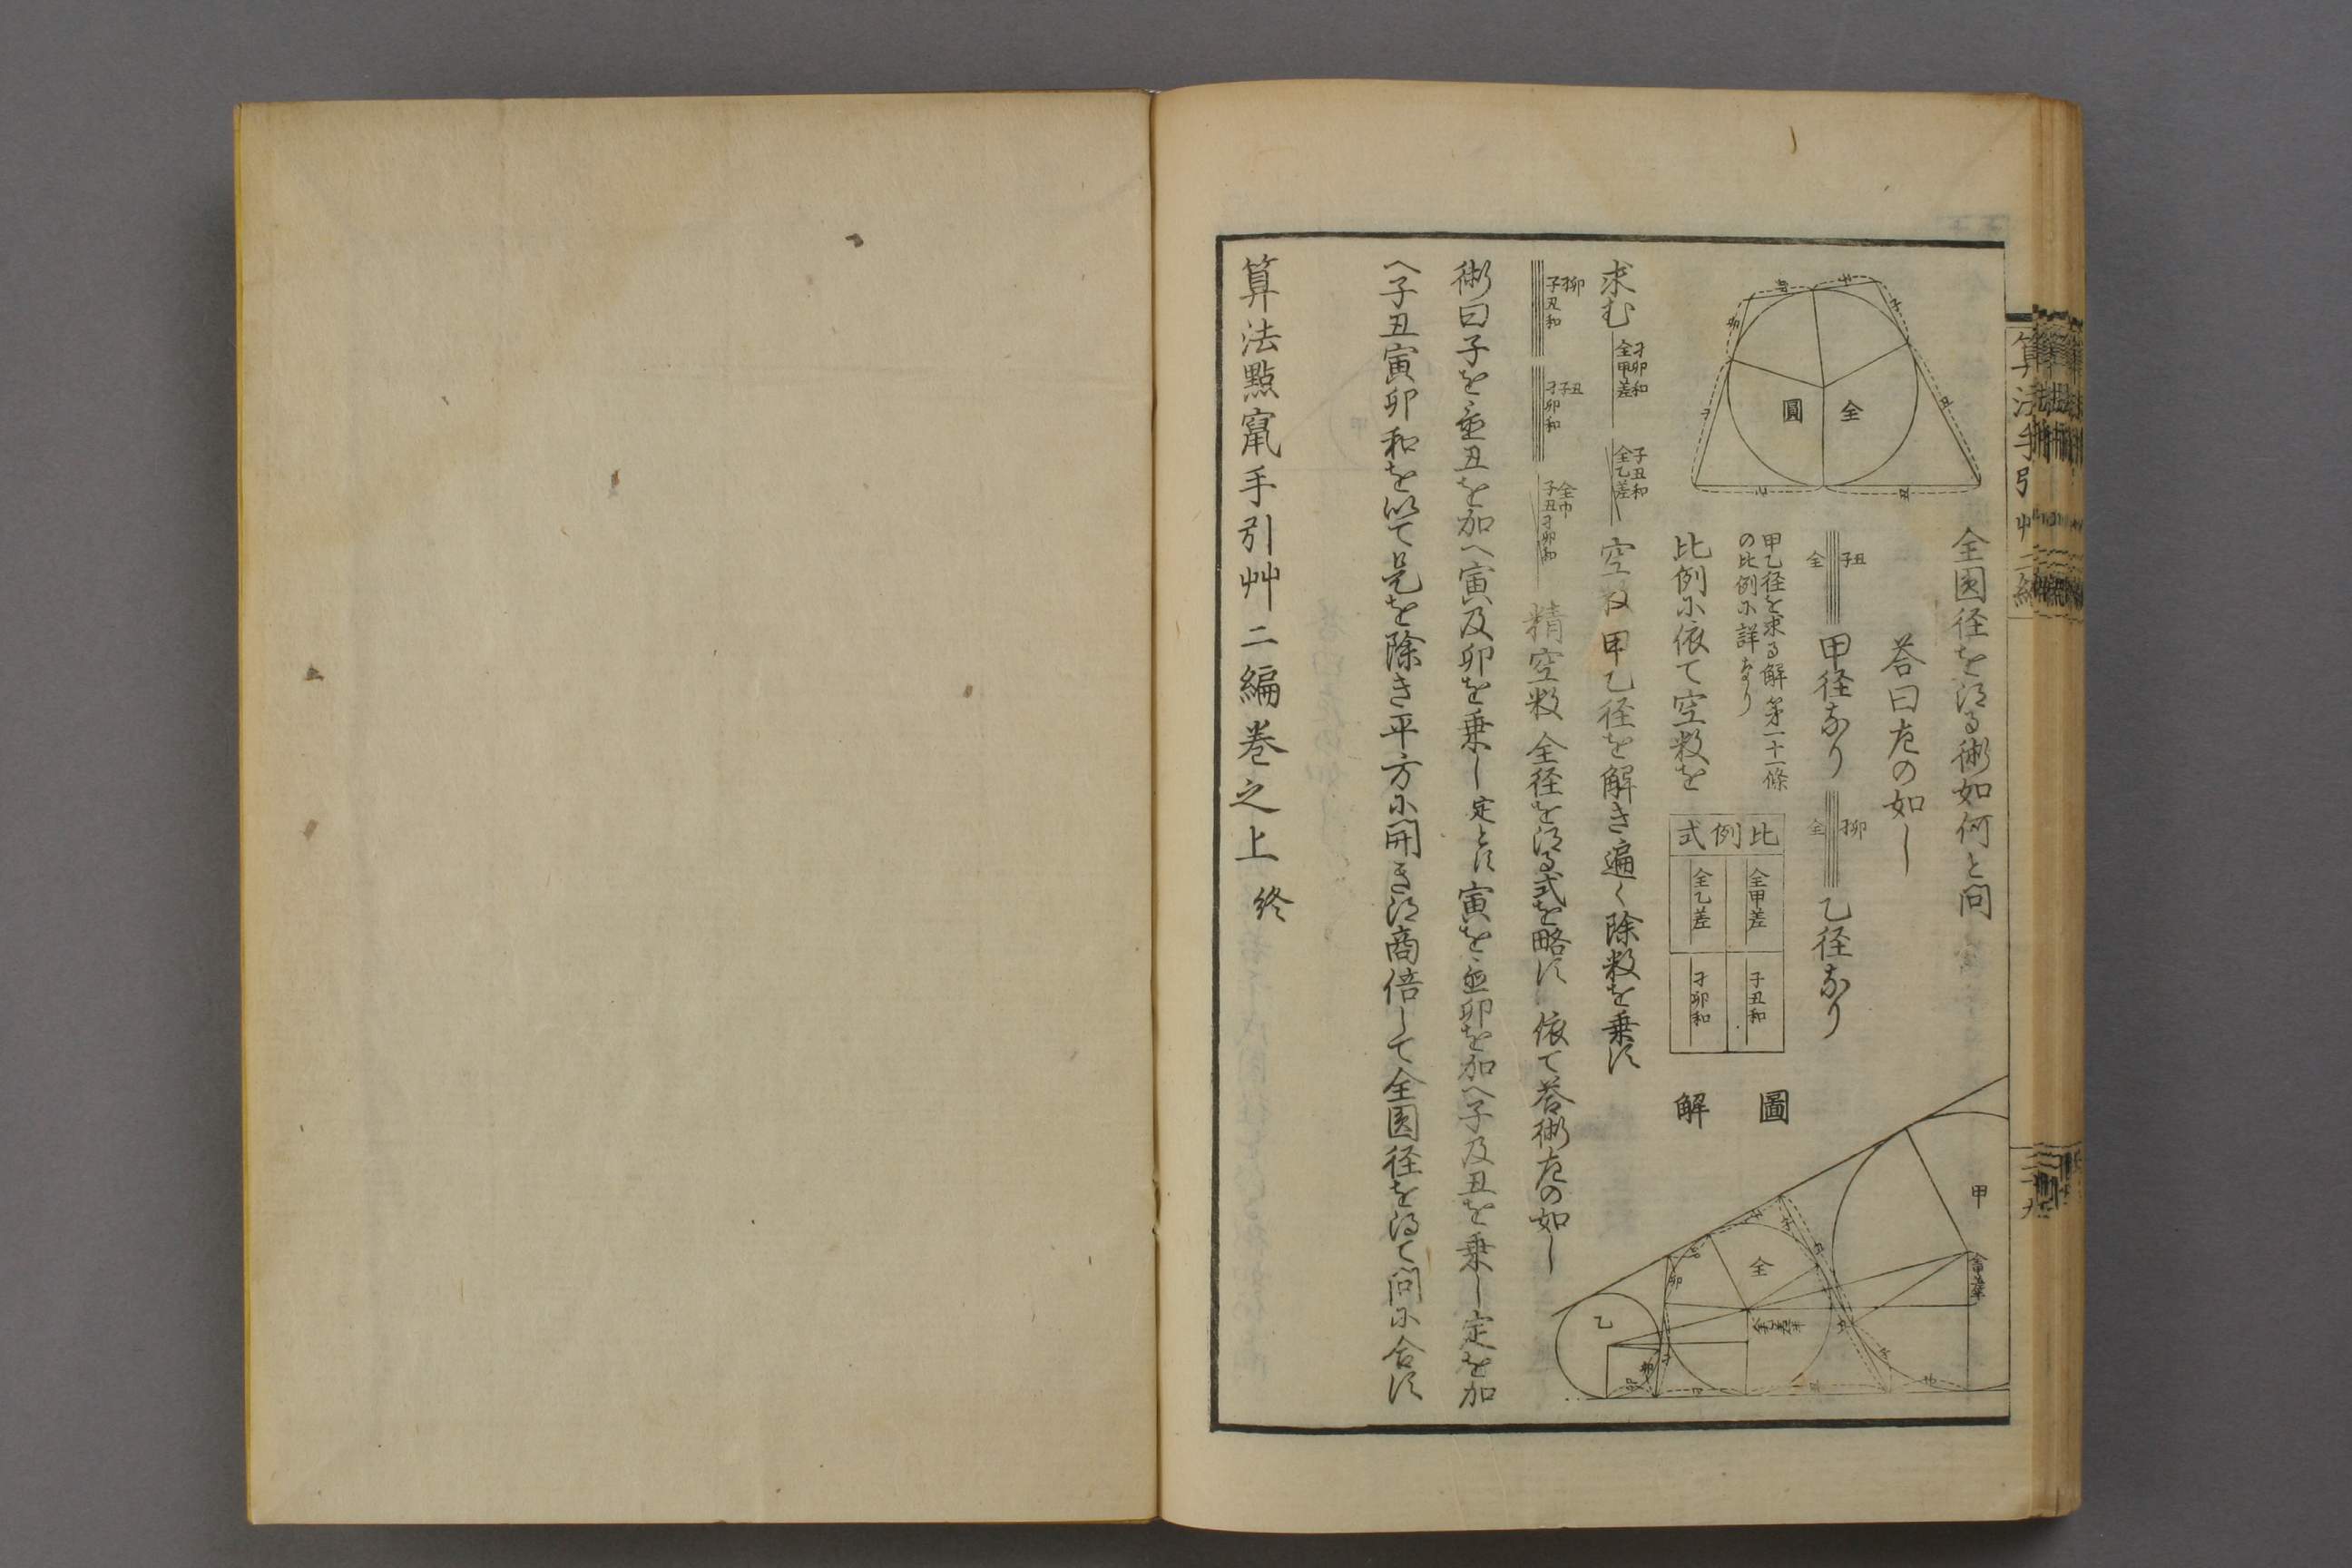 全圓径を得る術如何と問
答曰左の如し
全
圓
子丑
全
甲径なり
寅卯
全
乙径なり
甲乙径を求る解第一十一條
の比例に詳なり
比例に依て空数を
比例式
全甲差
子丑和
全乙差
寅卯和
圖
解
甲
全
乙
求む
寅卯和
全甲差
子丑和
全乙差
空数甲乙径を解き遍く除数を乗す
寅卯
子丑和
子丑
寅卯和
子丑寅卯和
精空数全径を得る式を略す依て答術左の如し
術曰子を㐀丑を加へ寅及卯を乗し定とす寅を㐀卯を加へ子及丑を乗し定を加
へ子丑寅卯和を以て是を除き平方に開き得商倍して全圓径を得て問に合す
算法點竄手引艸二編巻之上終
算法手引艸二編